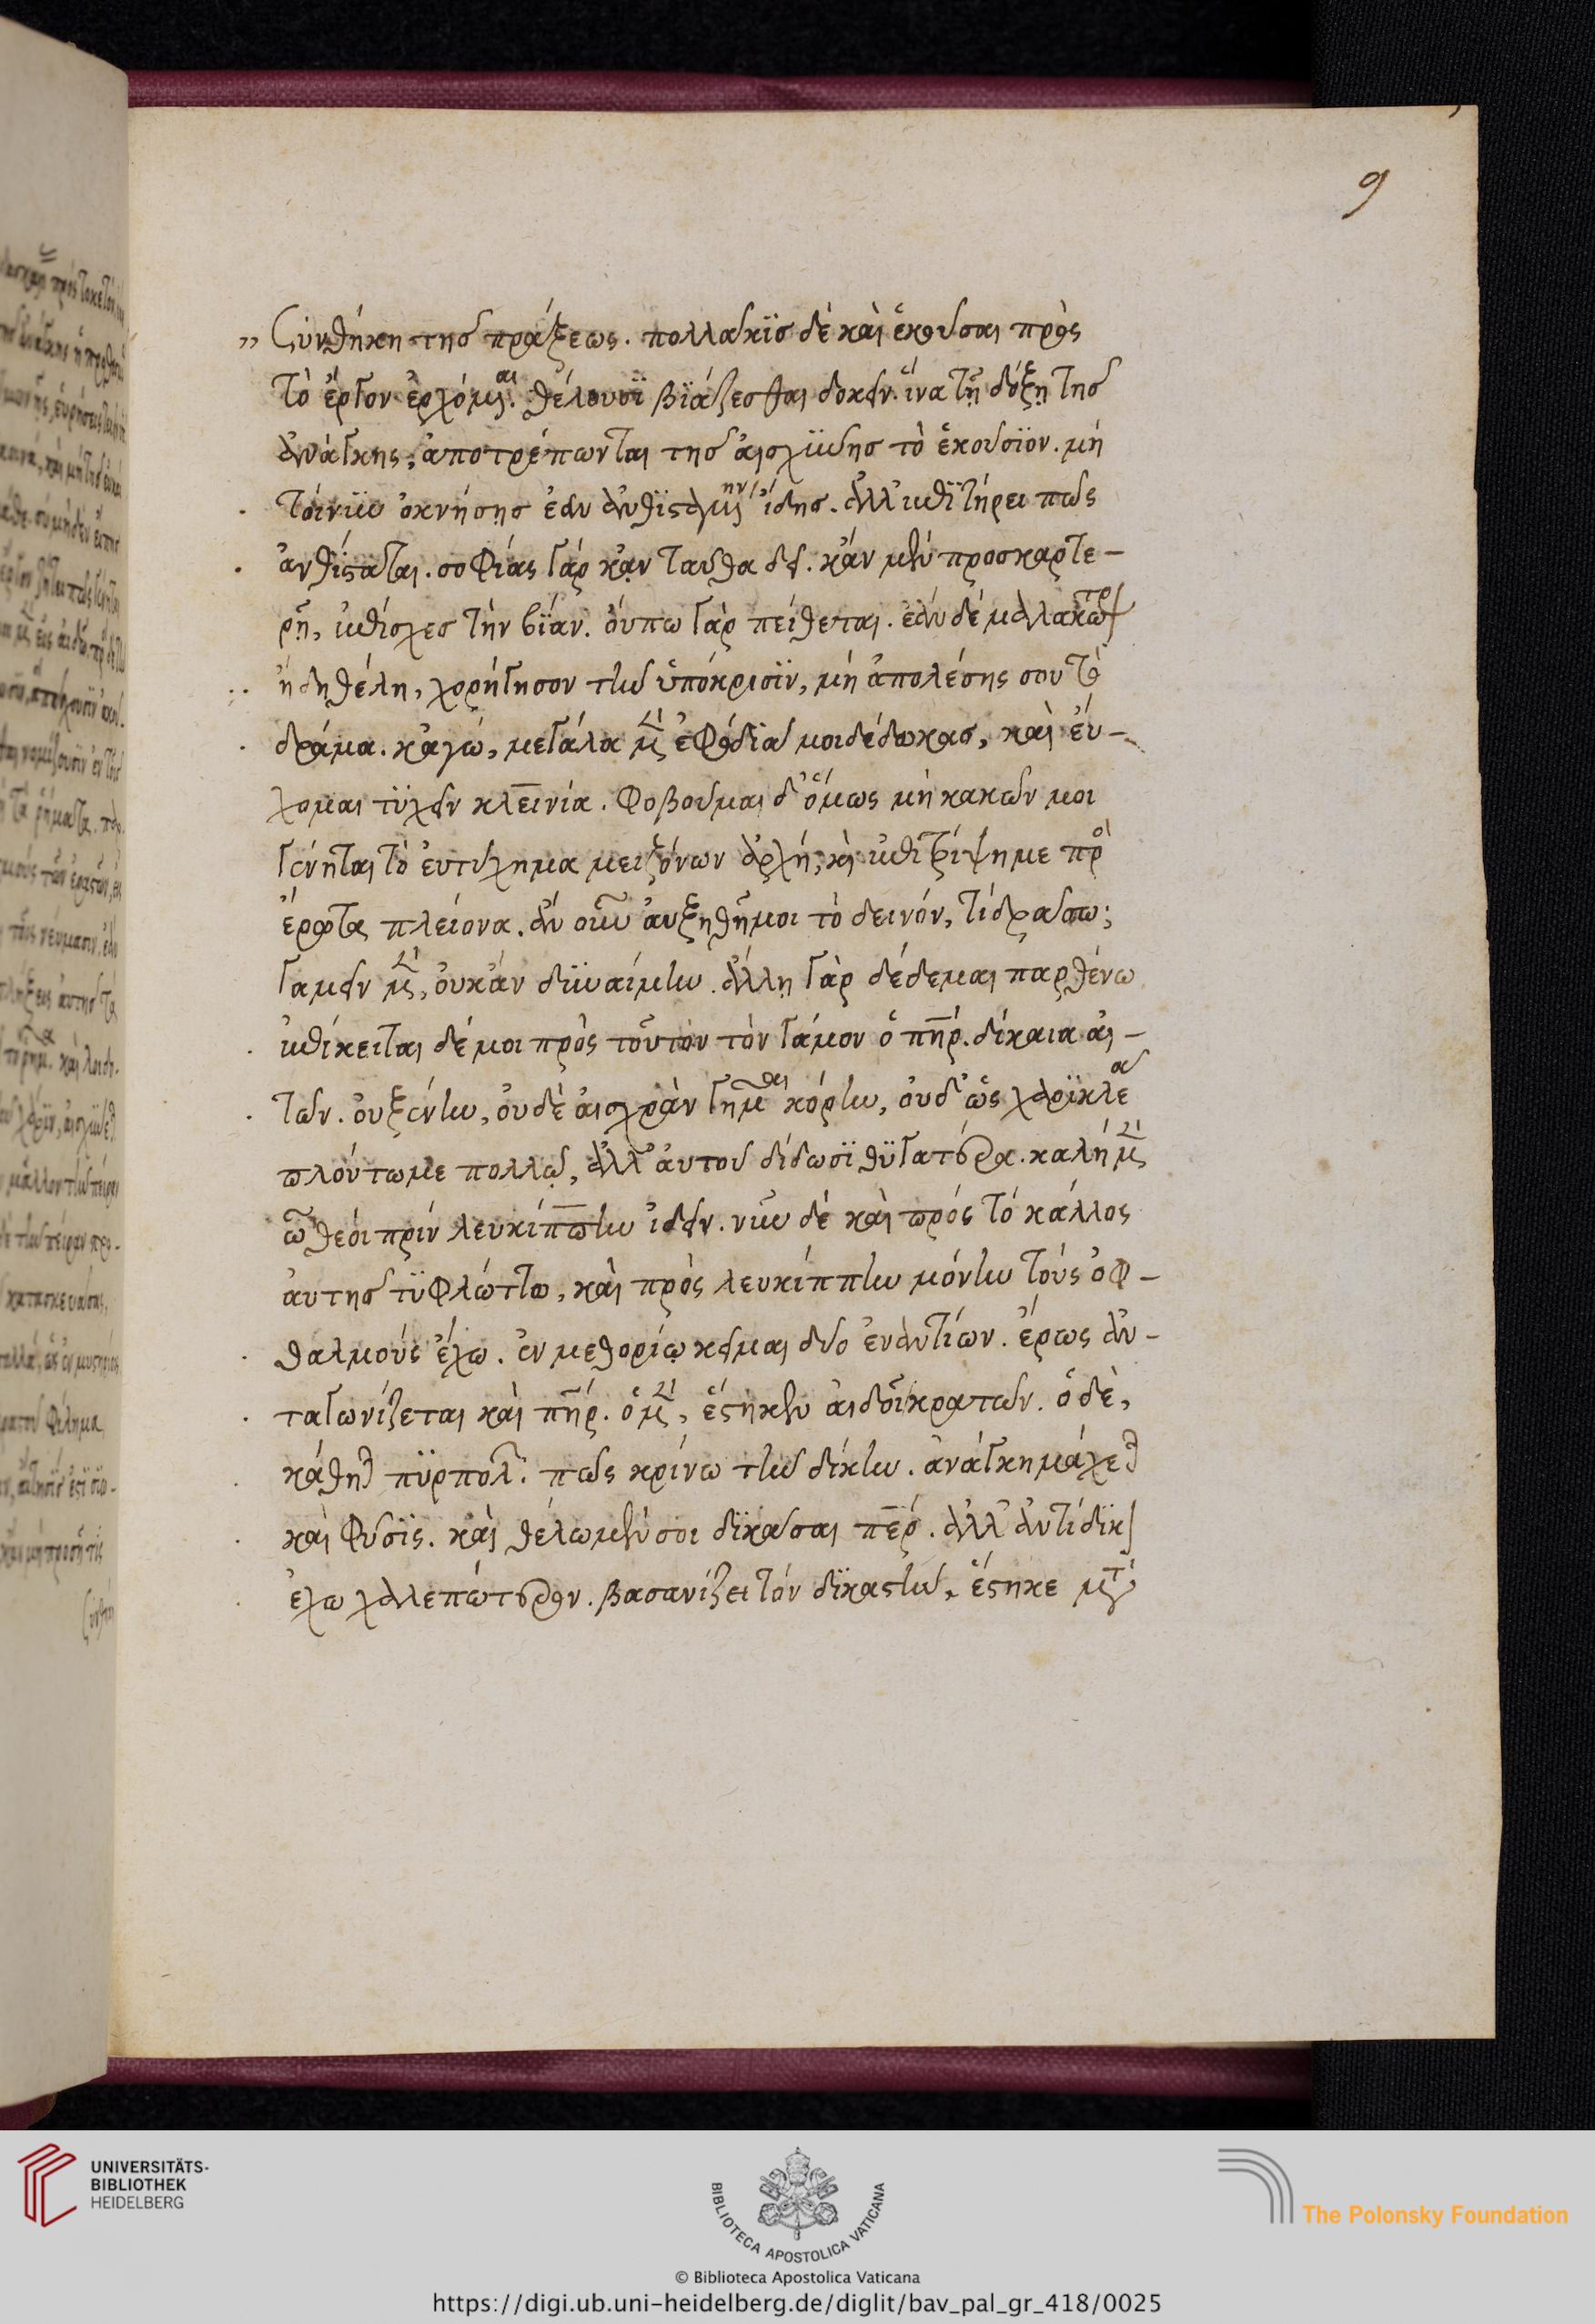 9
„ Συνθήκη τῆς πράξεως. πολλάκϊς δὲ καὶ ἑκοῦσαι πρὸς
τὸ ἔργον ἐρχόμεναι. θέλουσϊ βϊάζεσθαι δοκεῖν. ἵνα τῇ δόξῃ τῆς
ἀνάγκης, ἀποτρέπωνται τῆς αἰσχύνης τὸ ἑκούσϊον. μὴ
τοίνϋν ὀκνήσῃς ἐὰν ἀνθϊσταμένην ἴδης. ἀλλ' ἐπιτήρει πῶς
ἀνθίσταται. σοφίας γάρ κἂν ταῦθα δεῖ. κἂν μὲν προσκαρτε-
ρῇ, ἐπίσχες τὴν βϊάν. οὔπω γὰρ πείθεται. ἐὰν δὲ μαλακώτερον
ἤδη θέλη, χορήγησον τὴν ὑπόκρισϊν, μὴ ἀπολέσῃς σου τὸ
δράμα. κἀγώ, μεγάλα μὲν ἐφόδϊα μοι δέδωκας, καὶ εὔ-
χομαι τϋχεῖν κλεινία. φοβοῦμαι δ' ὅμως μὴ κακῶν μοι
γένηται τὸ εὐτύχημα μειζόνων ἀρχή, καὶ ἐπιτρίψη με πρὸς
ἔρωτα πλείονα. ἂν οὖν αὐξηθῆ μοι τὸ δεινόν, τί δράσω;
γαμεῖν μὲν, οὐκ ἂν δϋναίμην. ἄλλῃ γὰρ δέδεμαι παρθένω
ἐπίκειται δέ μοι πρὸς τοῦτον τὸν γάμον ὁ πηρ. δίκαια αἰ-
τῶν. οὐ ξένην, οὐδὲ αἰσχρὰν γῆμαι κόρην, οὐδ' ὡς χαρϊκλέα
πλούτω με πολλῷ, ἀλλ' αὐτοῦ δίδωσϊ θϋγατέρα. καλὴ μὲν
ὦ θεοὶ πρὶν λευκίππην ἰδεῖν. νῦν δὲ καὶ πρὸς τὸ κάλλος
αὐτῆς τϋφλώττω, καὶ πρὸς λευκίππην μόνην τοὺς ὀφ-
θαλμοὺς ἔχω. ἐν μεθορίῳ κεῖμαι δύο ἐναντίων. ἔρως ἀν-
ταγωνίζεται καὶ πηρ. ὁ μὲν, ἕστηκεν αἰδοῖ κρατῶν. ὁ δὲ,
κάθηται πϋρπολῶν. πῶς κρίνω τὴν δίκην. ἀνάγκη μάχεται
καὶ φύσϊς. καὶ θέλω μὲν σοι δϊκάσαι περ. ἀλλ' ἀντίδϊκον
ἔχω χαλεπώτερον. βασανίζει τὸν δϊκαστὴν, ἕστηκε μετὰ
UNIVERSITÄTS-
BIBLIOTHEK
HEIDELBERG
BIBLIOTECA APOSTOLICA VATICANA
The Polonsky Foundation
© Biblioteca Apostolica Vaticana
https://digi.ub.uni-heidelberg.de/diglit/bav_pal_gr_418/0025